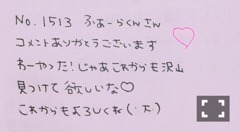 No.1513 ふぁーらくんさん
コメントありがとうございます
わーやった！じゃあこれからも沢山
見つけて欲しいな♡
これからもよろしくね(・π・)